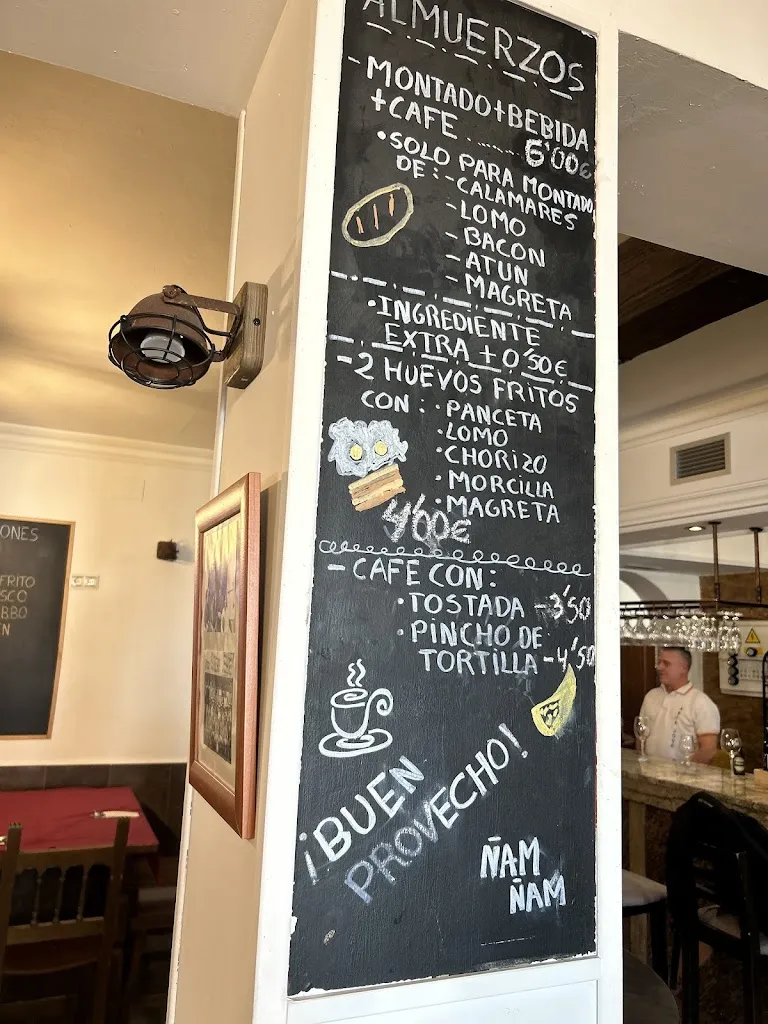 ALMUERZOS
- MONTADO+BEBIDA
+CAFE ........ 6'00€
• SOLO PARA MONTADO
DE: - CALAMARES
- LOMO
- BACON
- ATUN
- MAGRETA
• INGREDIENTE
EXTRA + 0'50€
- 2 HUEVOS FRITOS
CON: • PANCETA
• LOMO
• CHORIZO
• MORCILLA
• MAGRETA
- CAFE CON:
• TOSTADA - 3'50
• PINCHO DE
TORTILLA - 4'50
¡BUEN
PROVECHO!
ÑAM
ÑAM
ONES
FRITO
SCO
BBO
N